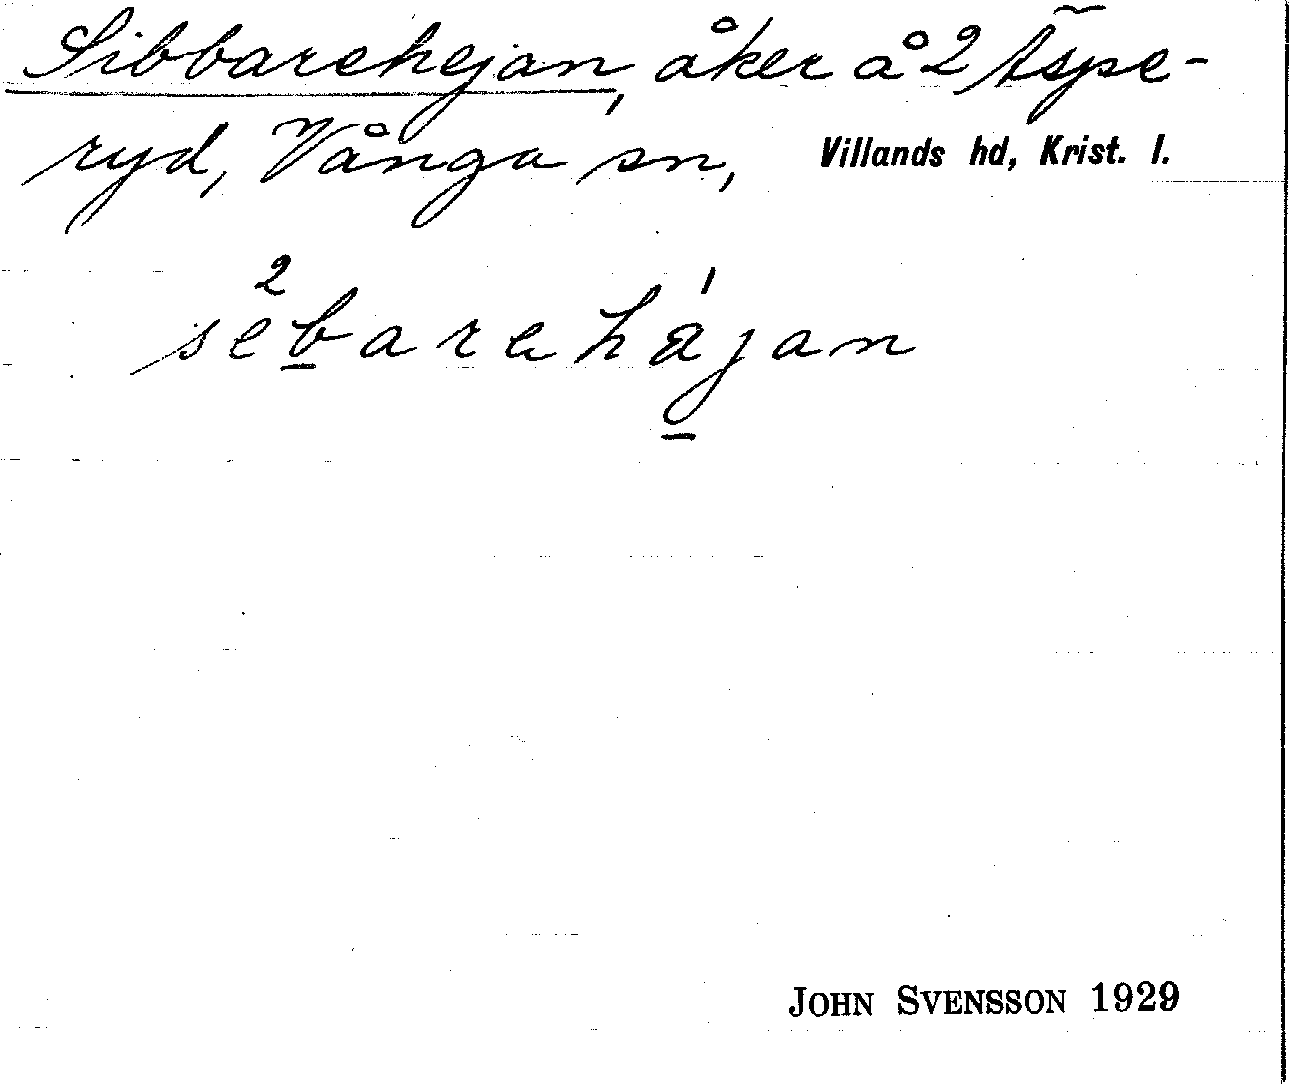 Sibbarehejan, åker å 2 Äspe-
ryd, Vånga sn, Villands hd, Krist. l.
JOHN SVENSSON 1929